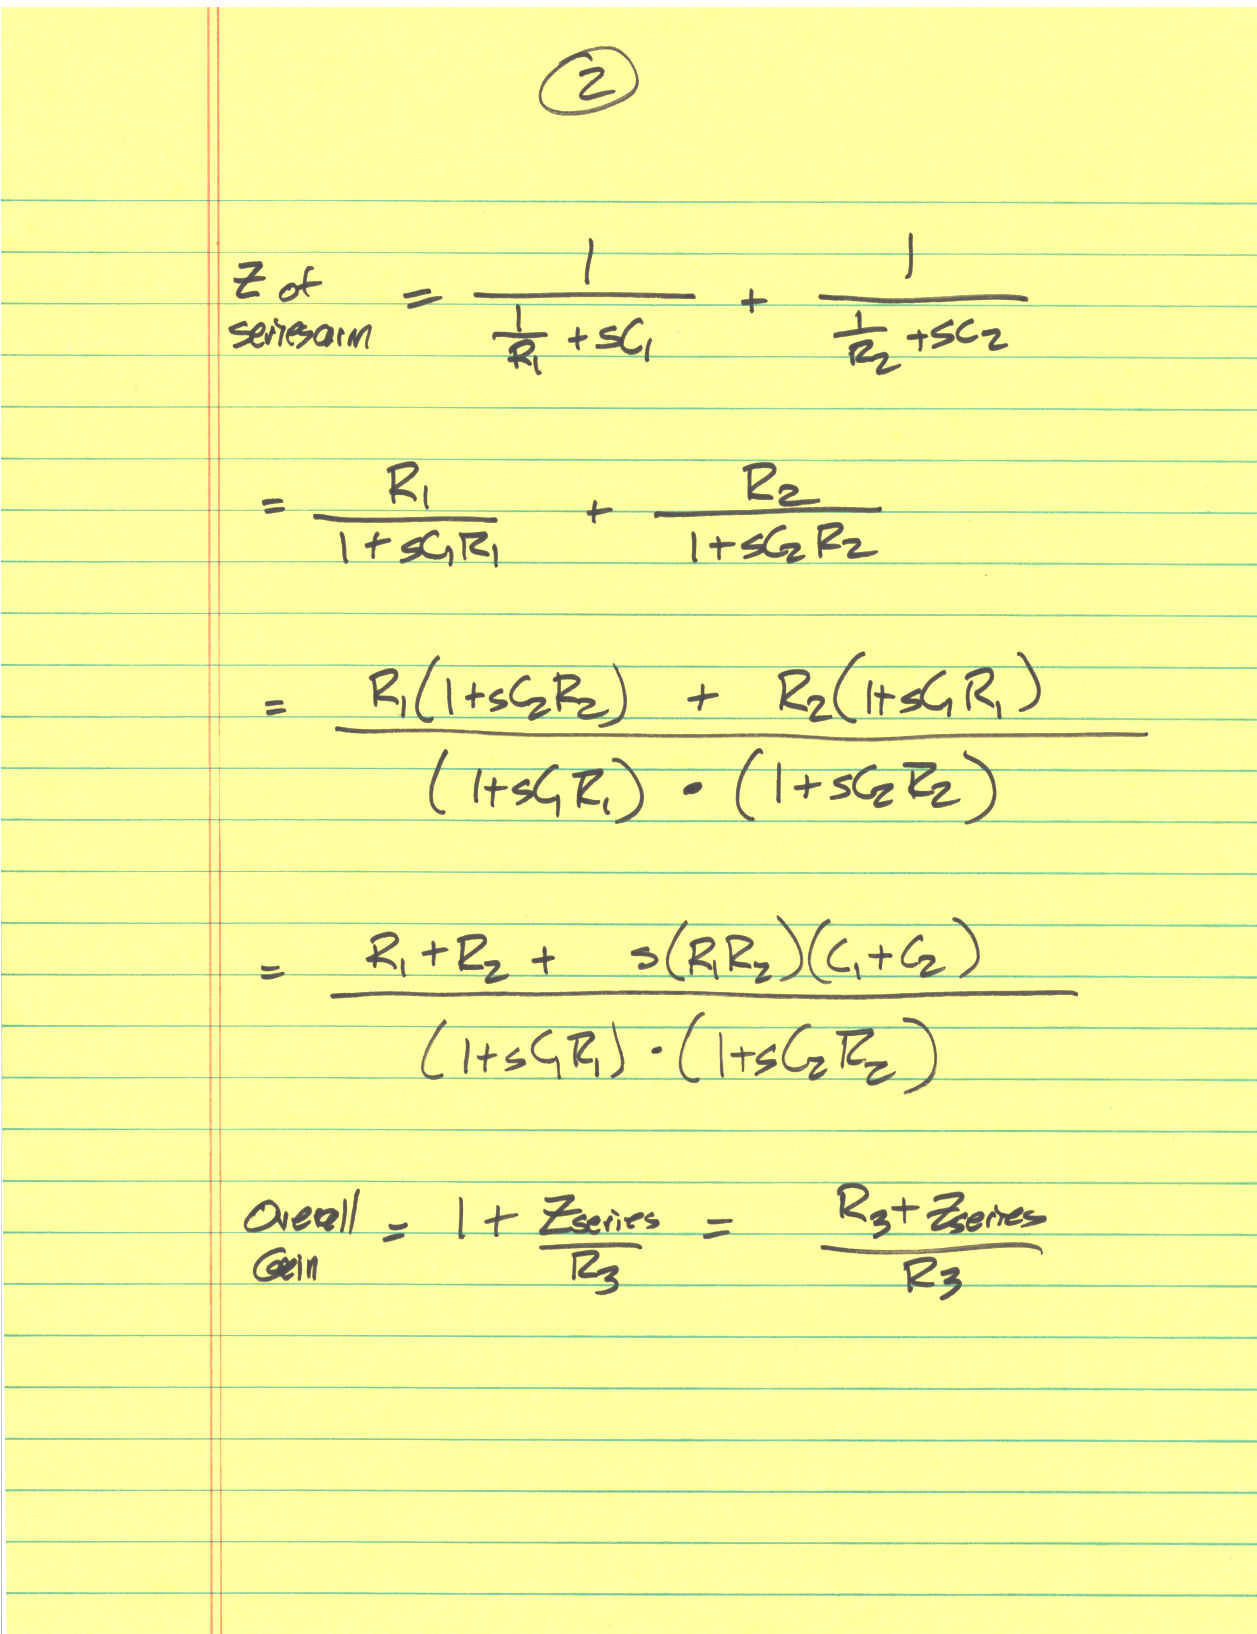 2
Z of series arm = 1/(1/R1 + sC1) + 1/(1/R2 + sC2)
= R1/(1 + sC1R1) + R2/(1 + sC2R2)
= (R1(1+sC2R2) + R2(1+sC1R1))/((1+sC1R1) · (1+sC2R2))
= (R1 + R2 + s(R1R2)(C1+C2))/((1+sC1R1) · (1+sC2R2))
Overall Gain = 1 + Zseries/R3 = (R3 + Zseries)/R3